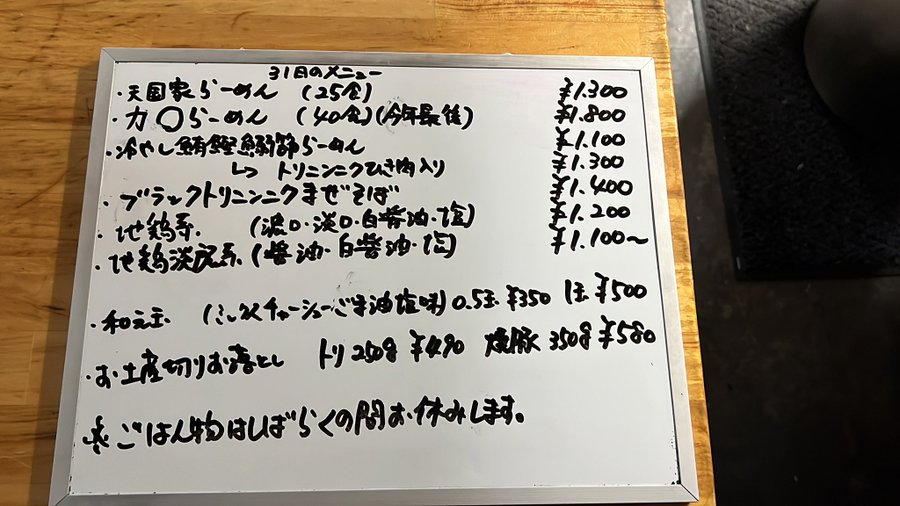 31日のメニュー
・天国家らーめん (25食) ¥1.300
・力〇らーめん (40食)(今年最後) ¥1.800
・冷やし鯖鰹鰯節らーめん ¥1.100
↳ トリニンニクひき肉入り ¥1.300
・ブラックトリニンニクまぜそば ¥1.400
・地鶏系. (濃口・淡口・白醤油・塩) ¥1.200
・地鶏淡麗系 (醤油・白醤油・塩) ¥1.100〜
・和え玉 (ミックスチャーシューごま油塩味) 0.5玉 ¥350 1玉 ¥500
・お土産切りお落とし トリ250g ¥490 焼豚350g ¥580
※ごはん物はしばらくの間お休みします。